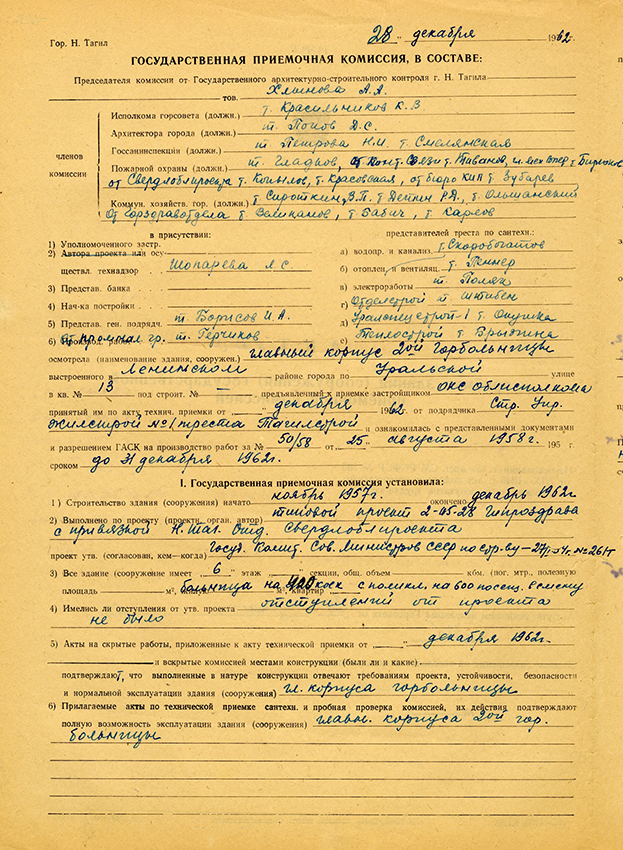 Гор. Н. Тагил 28 " декабря 1962г.
ГОСУДАРСТВЕННАЯ ПРИЕМОЧНАЯ КОМИССИЯ, В СОСТАВЕ:
Председателя комиссии от Государственного архитектурно-строительного контроля г. Н. Тагила
тов. Хлынова А.А.
членов комиссии
Исполкома горсовета (должн.) т. Красильников К.З.
Архитектора города (должн.) т. Попов Д.С.
Госсанинспекция (должн.) т. Петрова Н.И. т. Смелянская
Пожарной охраны (должн.) т. Гладков, от Конт. Связи т. Иванов,
от Свердлоблпроекта т. Копылов, т. Красовская, от бюро КИП т. Зубарев
Коммун. хозяйств. гор. (должн.) т. Сироткин, З.П. т. Дейкин Р.А., т. Ольшанский
От горздравотдела т. Селиканов, т. Бабич, т. Карлов
в присутствии:
1) Уполномоченного застр.
2) Автора проекта или осу
ществл. технадзор Шопарева Л.С.
3) Представ. банка
4) Нач-ка постройки
5) Представ. ген. подрядч. т. Борисов И.А.
6) От промнал. гр. т. Герчиков
представителей треста по сантехн.:
а) водопр. и канализ. т. Скоробогатов
б) отоплен. и вентиляц. т. Геннер
в) электроработы т. Поляк
г) Отделстрой т. Штибен
д) Уралспецстрой-1 т.
е) Теплострой т.
осмотрела (наименование здания, сооружен.) главный корпус 2ой горбольницы
выстроенного в Ленинском районе города по Уральской улице
в кв. № 13 под строит. № предъявленного к приемке застройщиком ОКС облисполкома
принятый им по акту технич. приемки от " декабря 1962 от подрядчика Стр. Упр.
Жилстрой №1 треста Тагилстрой и ознакомилась с представленными документами
и разрешением ГАСК на производство работ за № 50/58 от 25 " августа 1958г. 195 г.
сроком до 31 декабря 1962г.
I. Государственная приемочная комиссия установила:
1) Строительство здания (сооружения) начато ноябрь 1957г. окончено декабрь 1962г.
2) Выполнено по проекту (проектн. орган. автор) типовой проект 2-05-28 Гипроздрава
с привязкой Н. Таг. Отд. Свердлоблпроекта
проект утв. (согласован, кем—когда) Госуд. Комит. Сов. Министров СССР по
3) Все здание (сооружение имеет 6 этаж секции, общ. объем кбм. (пог. мтр., полезную
площадь м², больница на 400 коек с поликл. на 600 посещ. в смену м², квартир
4) Имелись ли отступления от утв. проекта отступлений от проекта
не было
5) Акты на скрытые работы, приложенные к акту технической приемки от " декабря 1962г.
и вскрытые комиссией местами конструкции (были ли и какие)
подтверждают, что выполненные в натуре конструкции отвечают требованиям проекта, устойчивости, безопасности
и нормальной эксплуатации здания (сооружения) гл. корпуса горбольницы
6) Прилагаемые акты по технической приемке сантехн. и пробная проверка комиссией, их действия подтверждают
полную возможность эксплуатации здания (сооружения) главн. корпуса 2ой гор.
больницы